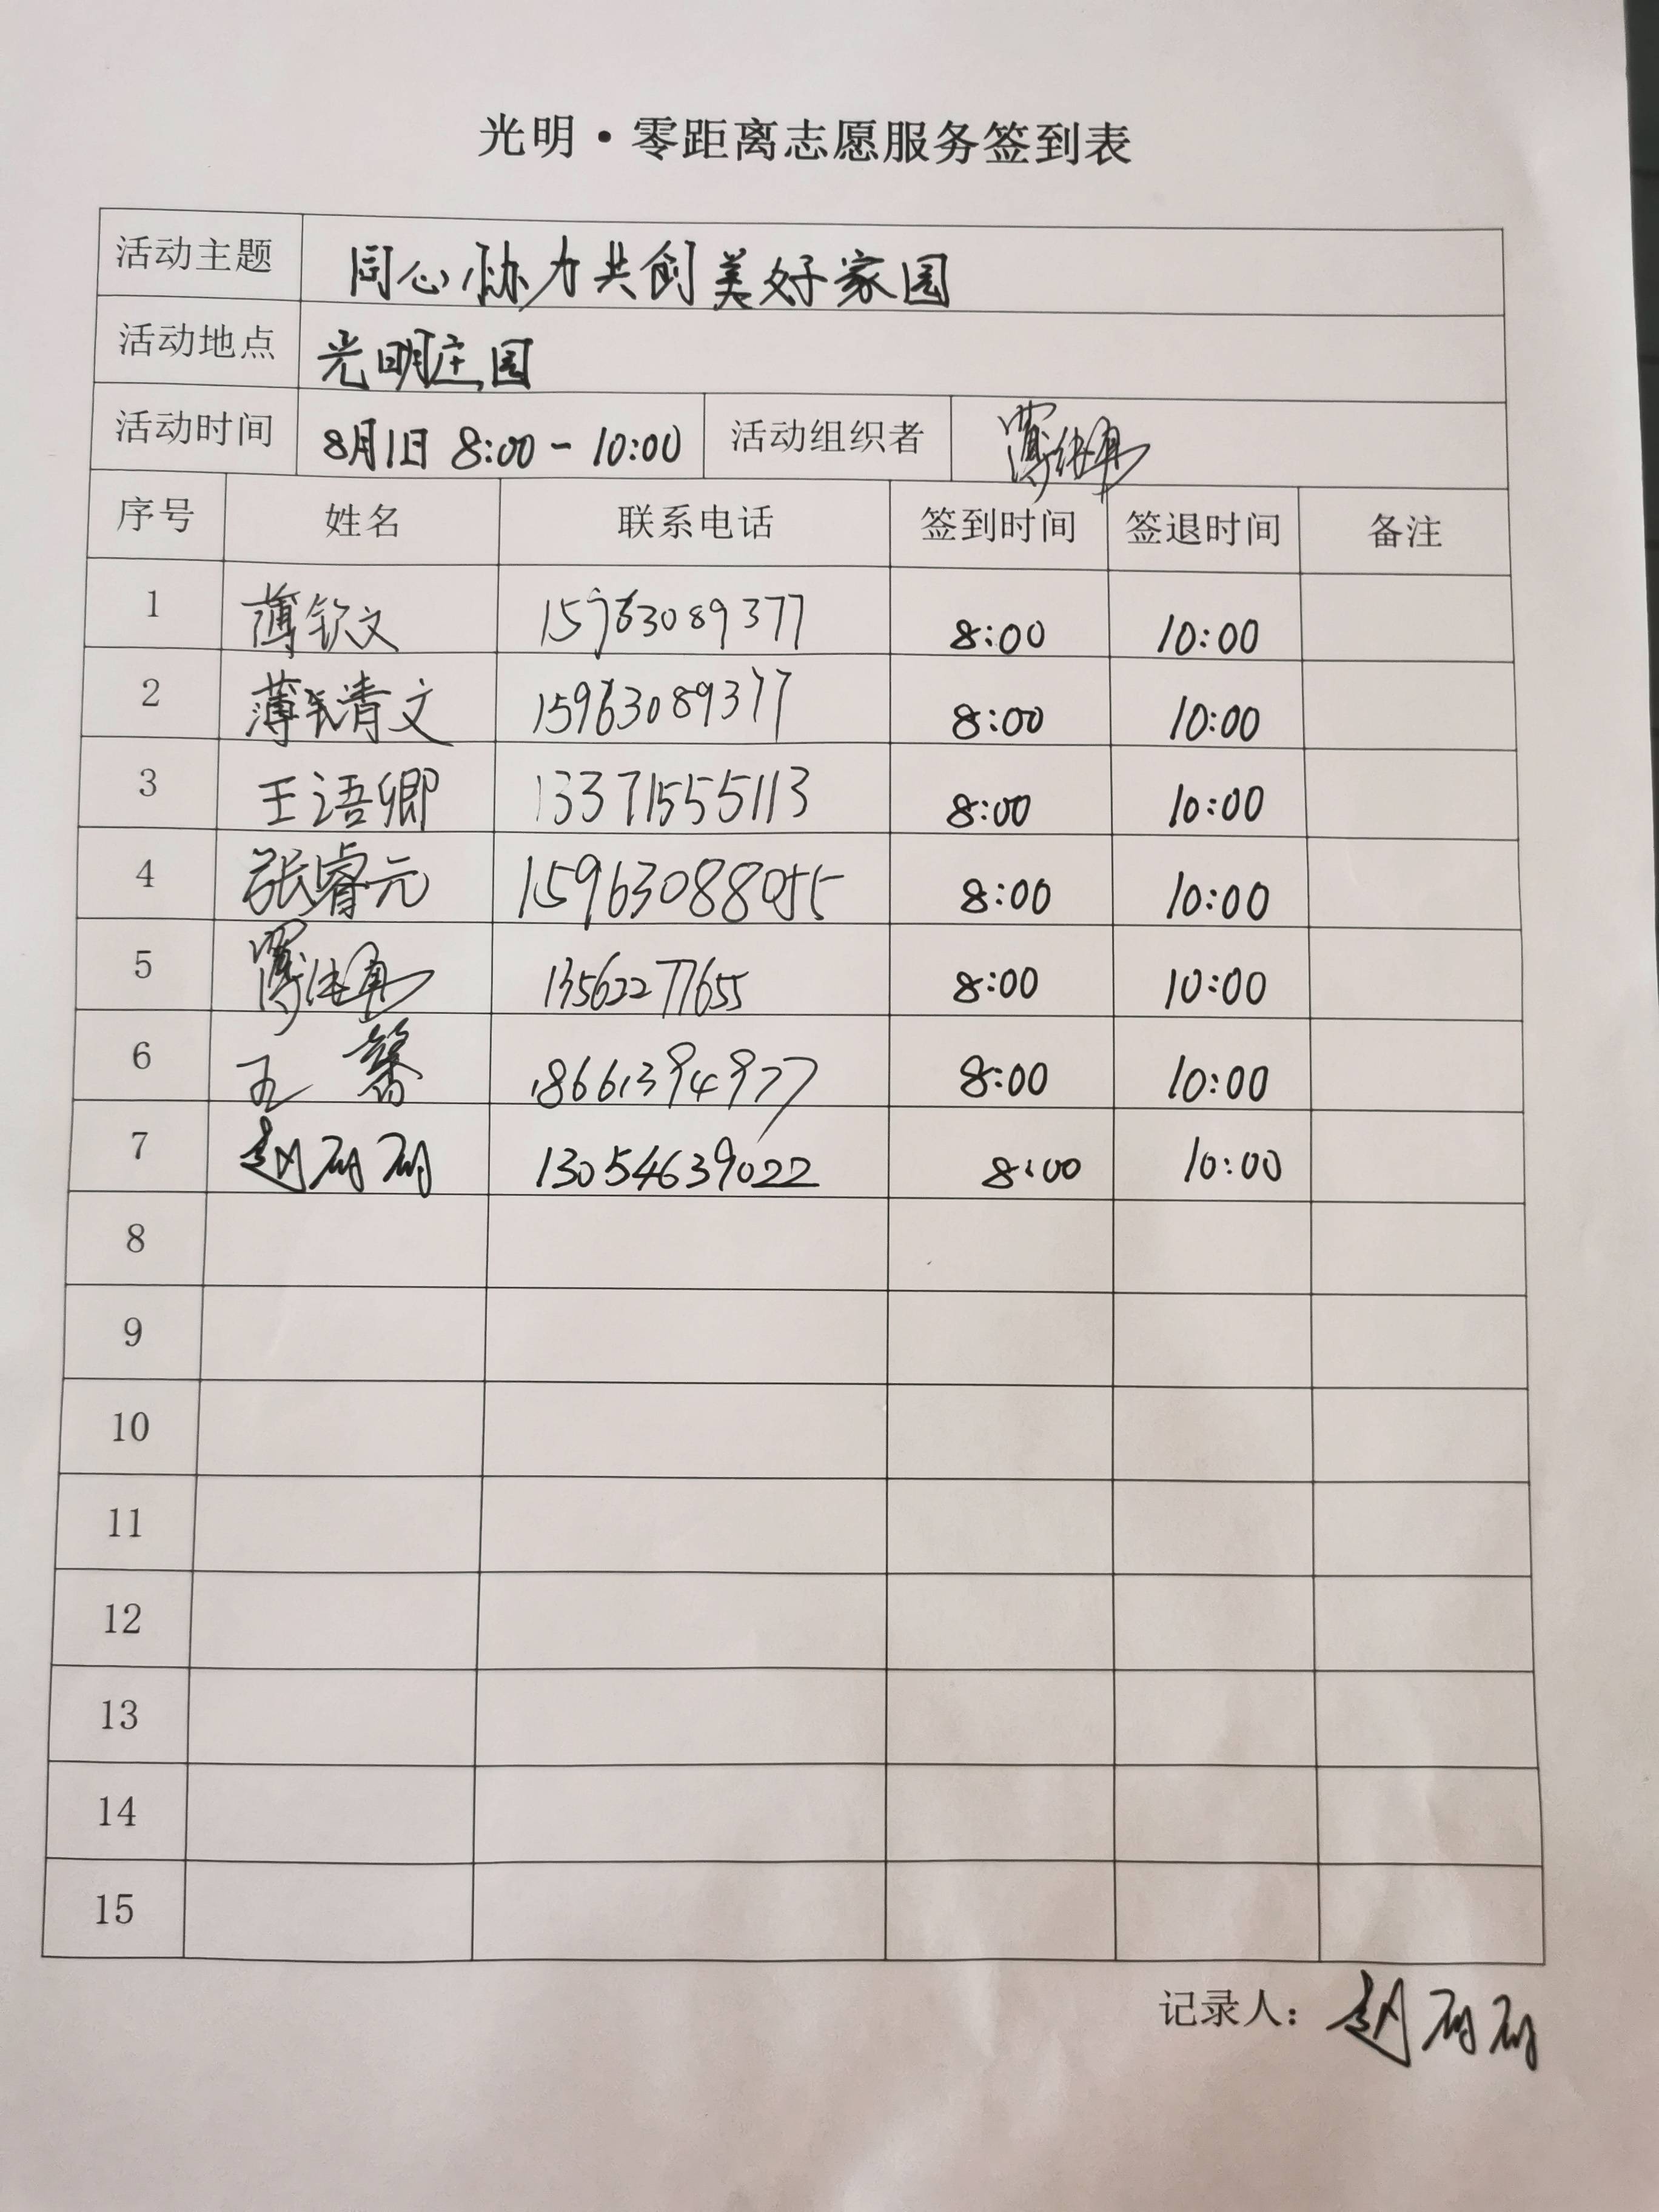 光明·零距离志愿服务签到表
活动主题 同心协力共创美好家园
活动地点 光明庄园
活动时间 8月1日 8:00-10:00 活动组织者
序号 姓名 联系电话 签到时间 签退时间 备注
1 薄钦文 15963089377 8:00 10:00
2 薄清文 15963089377 8:00 10:00
3 王语卿 13371555113 8:00 10:00
4 张睿元 15963088055 8:00 10:00
5 13562277655 8:00 10:00
6 王馨 18661394977 8:00 10:00
7 赵丽丽 13054639022 8:00 10:00
8
9
10
11
12
13
14
15
记录人：赵丽丽